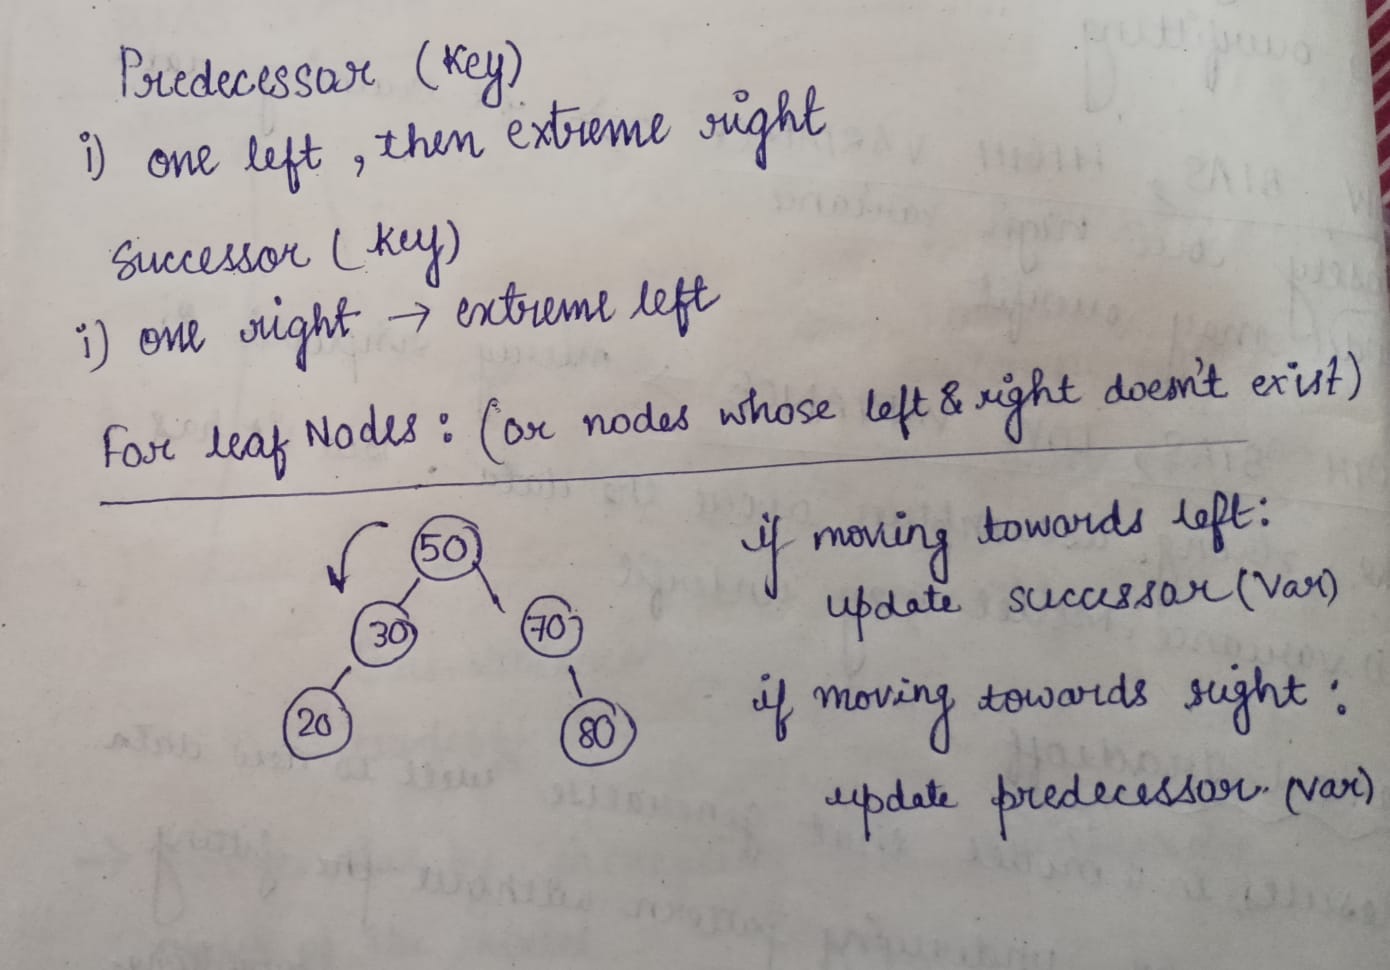 Predecessar (Key)
i) one left, then extreme right
Successor (Key)
i) one right → extreme left
For leaf Nodes : (or nodes whose left & right doesn't exist)
50
30
70
20
80
if moving towards left:
update successar (Var)
if moving towards right :
update predecessor. (var)